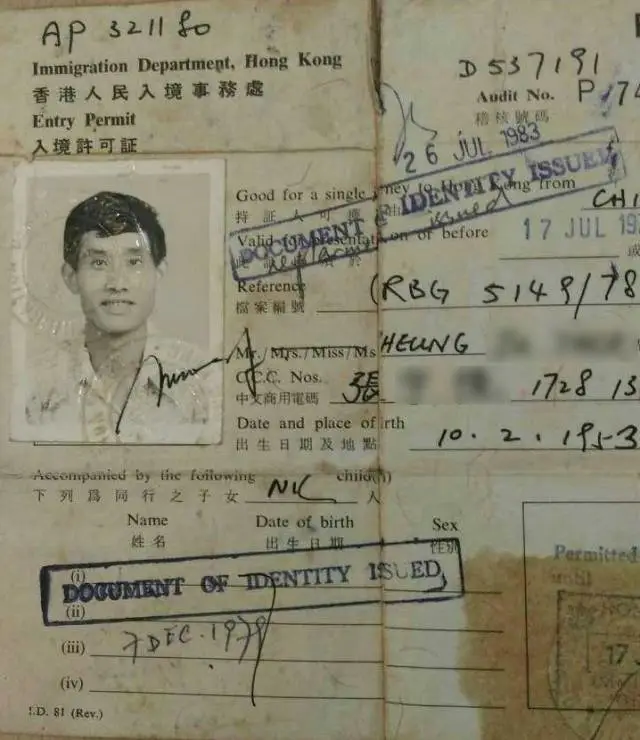 AP 321180
Immigration Department, Hong Kong
香港人民入境事務處
Entry Permit
入境許可証
D537191
Audit No. P 174
稽核號碼
26 JUL 1983
DOCUMENT OF IDENTITY ISSUED
Good for a single
from CHI
持証人可
Valid for presentation on or before 17 JUL 19
Reference (RBG 5149/78
檔案編號
Mr./Mrs./Miss/Ms CHEUNG
C.C.C. Nos. 張 1728 13
中文商用電碼
Date and place of birth 10.2.1953
出生日期及地點
Accompanied by the following NIL child(n)
下列爲同行之子女 人
Name Date of birth Sex
姓名 出生日期 性別
(i)
DOCUMENT OF IDENTITY ISSUED
(ii)
(iii) 7 DEC. 1979
(iv)
I.D. 81 (Rev.)
Permitted
until
17